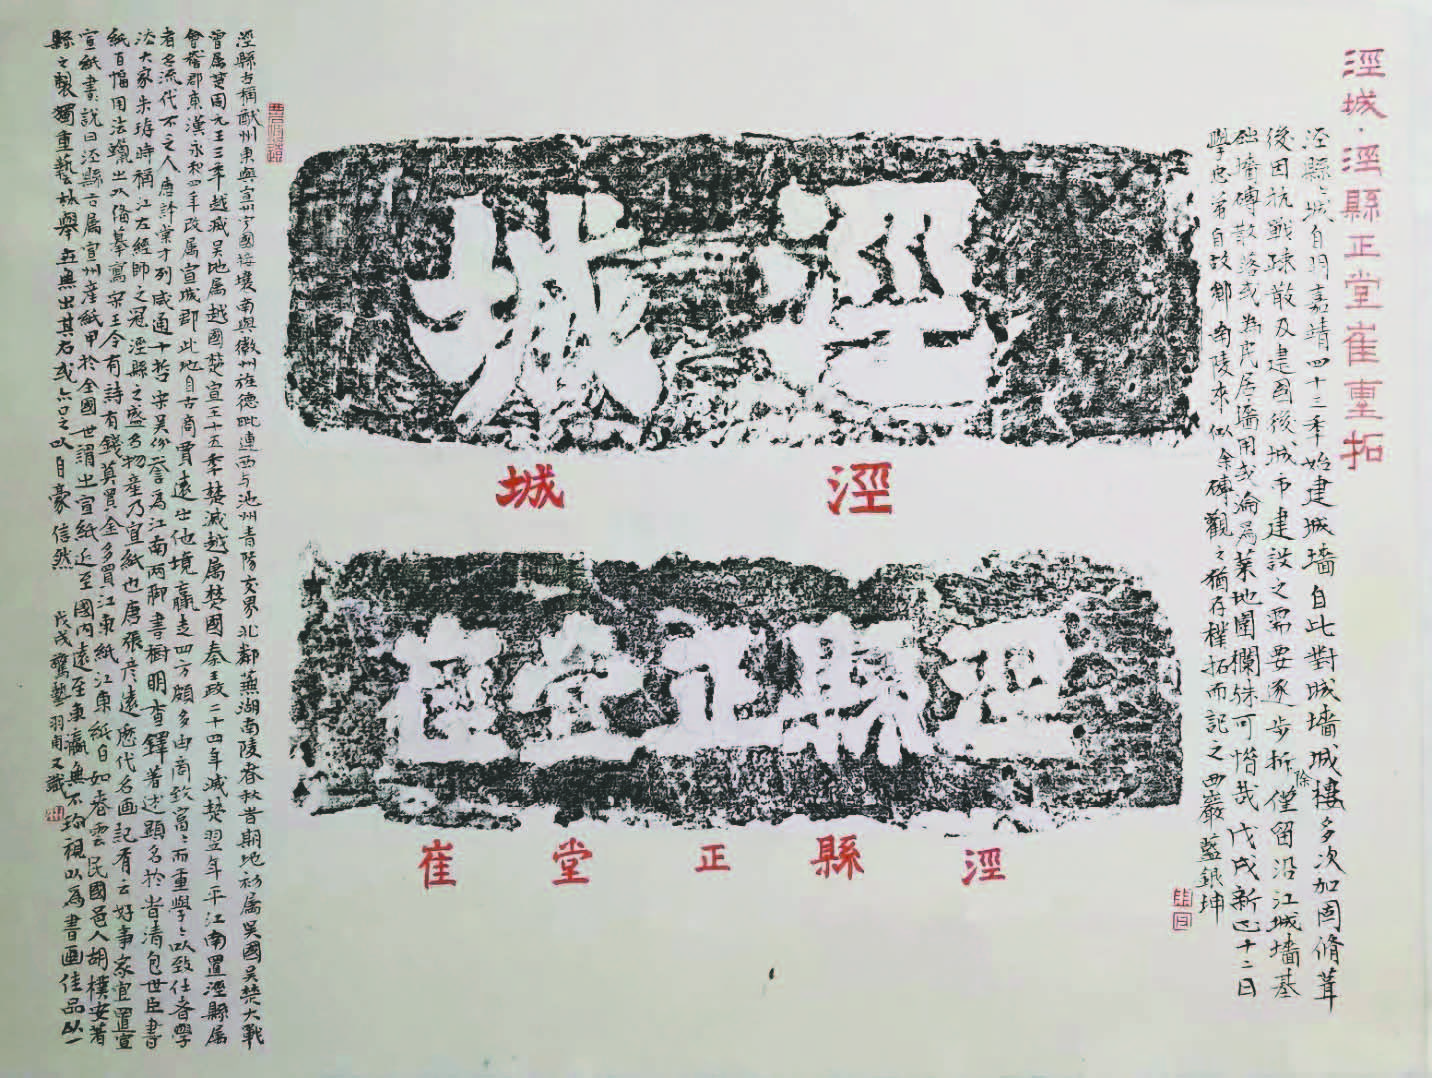 涇城·涇縣正堂崔重拓
涇縣之城自明嘉靖四十三年始建城墻自此對城墻城樓多次加固脩葺
後因抗戰疎散及建國後城市建設之需要逐步拆除僅留沿江城墻基
础墻磚散落或為民居墻用或淪為菜地圍欄殊可惜哉戊戌新正十二日
學忠弟自故鄉南陵來似余磚觀之猶存樸拓而記之西巖藍銀坤
涇城
城
涇
涇縣正堂崔
崔
堂
正
縣
涇
涇縣古稱猷州東與宣州寧國接壤南與徽州旌德毗連西与池州青陽交界北鄰蕪湖南陵春秋昔期地初屬吳國吳楚大戰
曾屬楚周元王三年越滅吳地屬越國楚宣王十五年楚滅越屬楚國秦王政二十四年滅楚翌年平江南置涇縣屬
會稽郡東漢永和四年改屬宣城郡此地自古商賈遠出他境贏走四方頗多由商致富富而重學學以致仕者學
者名流代不乏人唐許棠才列咸通十哲宋吳份譽為江南兩脚書橱明查鐸著述顯名於岩清包世臣書
法大家朱珔時稱江左經師之冠涇縣之盛名物產乃宣紙也唐張彦遠歷代名画記有云好事家宜置宣
紙百幅用法蠟之以備摹寫宋王令有詩有錢莫買金多買江東紙江東紙白如春雲民國邑人胡樸安著
宣紙書說曰涇縣古屬宣州產紙甲於全國世謂之宣紙近至國内遠至東瀛無不珎視以為書画佳品以一
縣之製獨重藝林舉世無出其右或六口之以自豪信然 戊戌驚蟄羽甫又識